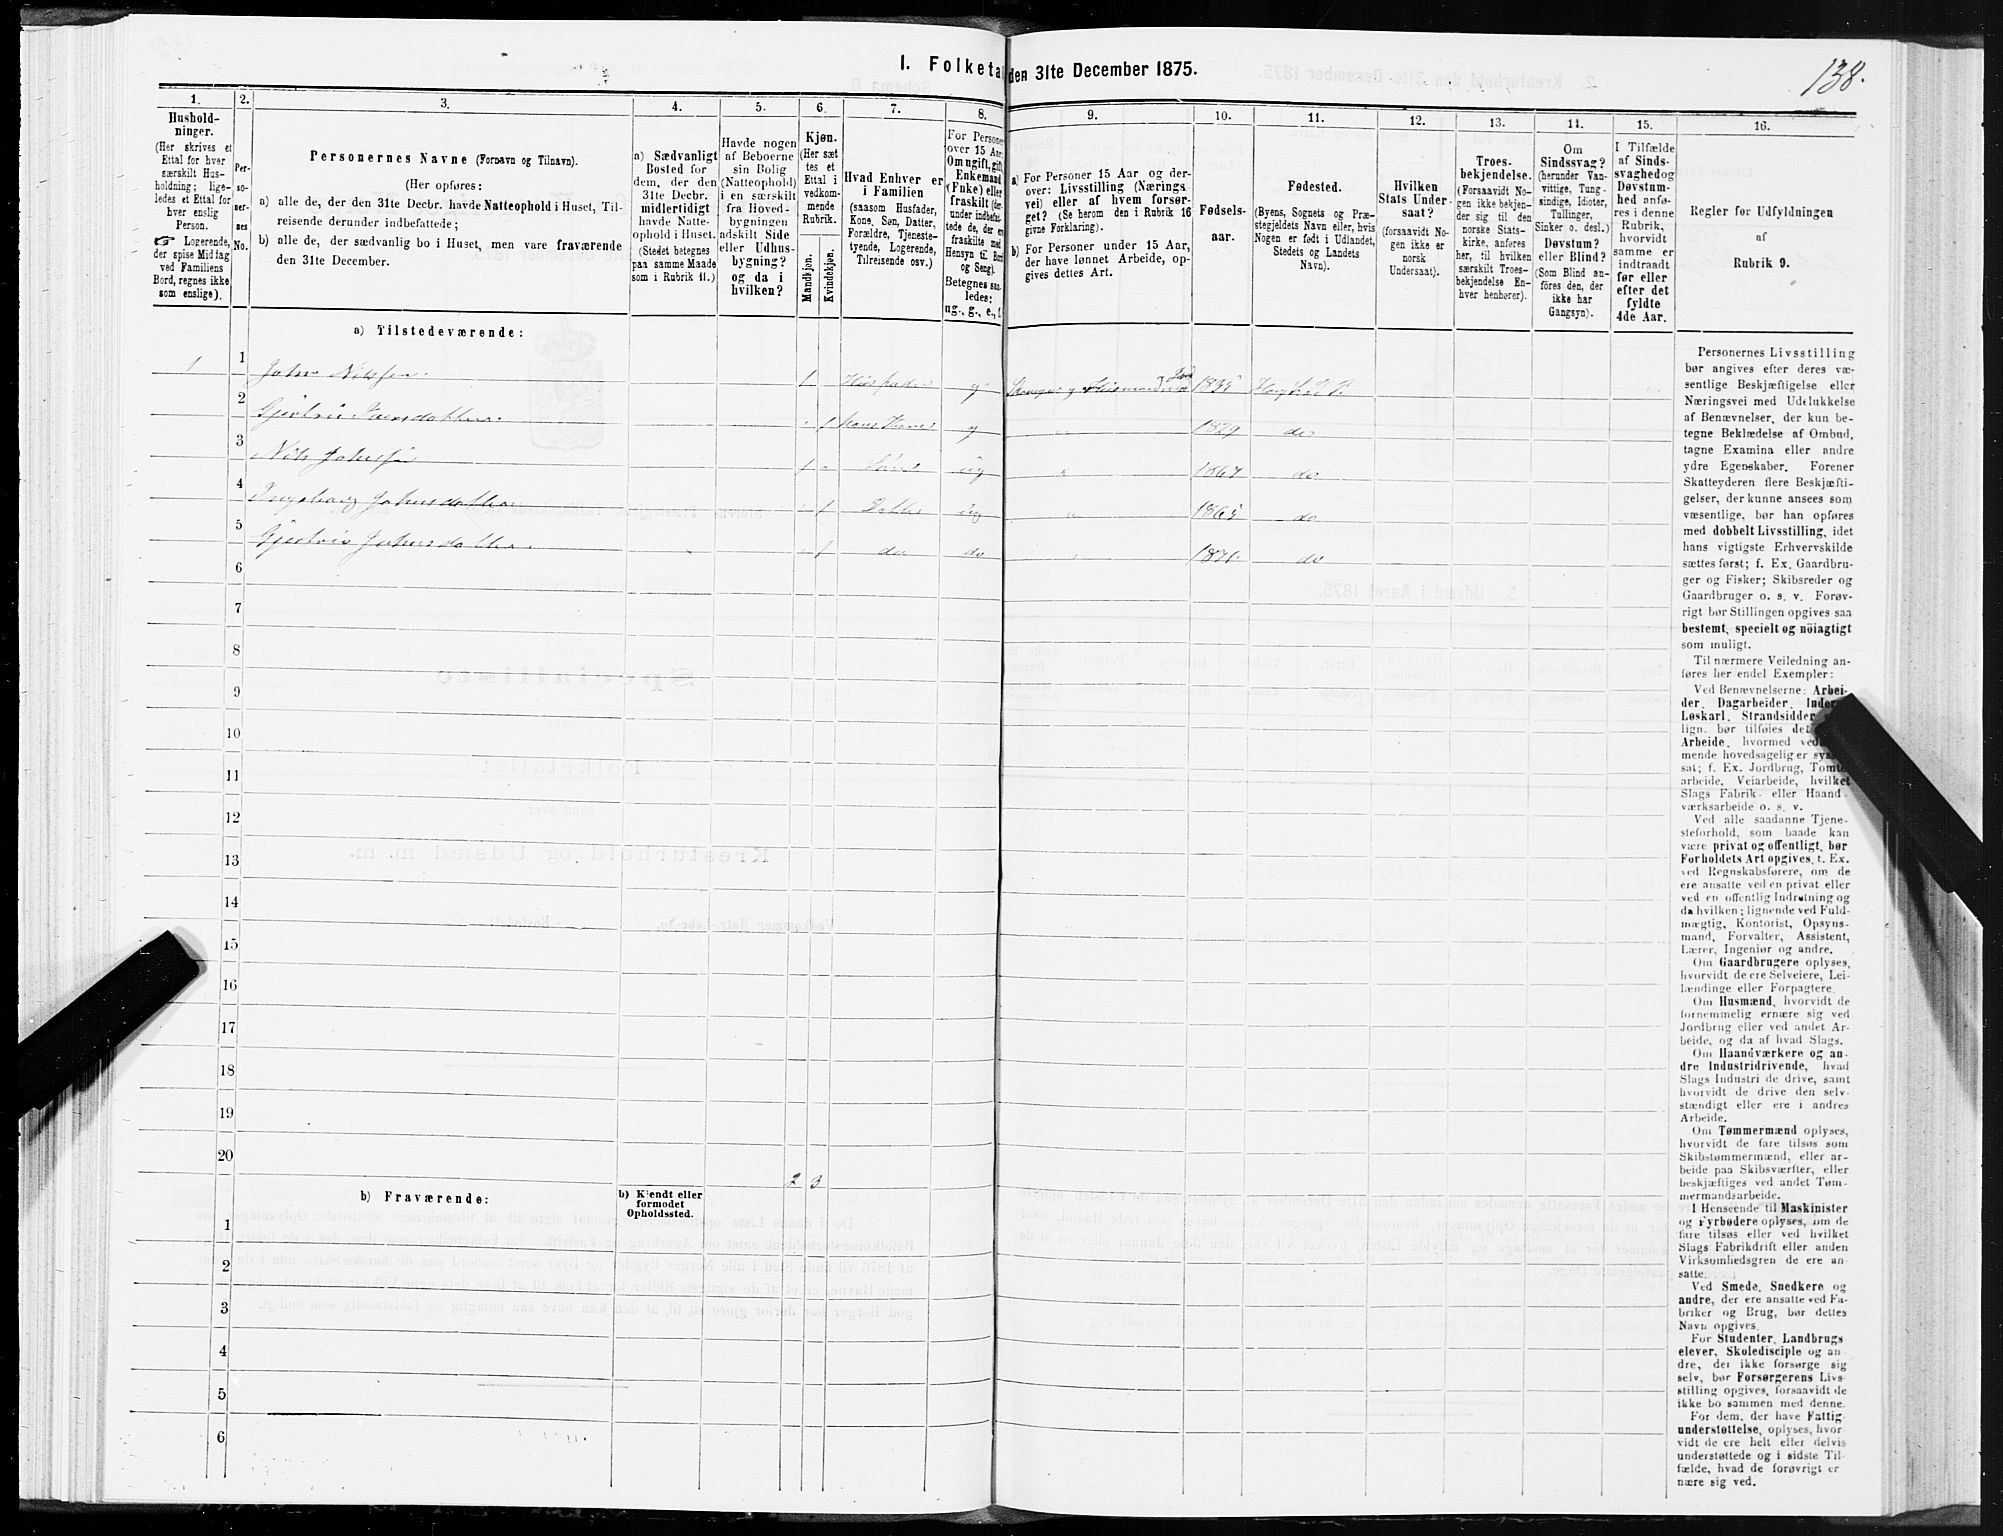 138.
I. Folketal
den 31te December 1875.
1.
Hushold-
ninger.
(Her skrives et
Ettal for hver
særskilt Hus-
holdning; lige-
ledes et Ettal for
hver enslig
Person.
☞ Logerende,
der spise Middag
ved Familiens
Bord, regnes ikke
som enslige).
2.
Per-
so-
ner-
nes
No.
3.
Personernes Navne (Fornavn og Tilnavn).
(Her opføres:
a) alle de, der den 31te Decbr. havde Natteophold i Huset, Til-
reisende derunder indbefattede;
b) alle de, der sædvanlig bo i Huset, men vare fraværende
den 31te December.
4.
a) Sædvanligt
Bosted for
dem, der den
31te Decbr.
midlertidigt
havde Natte-
ophold i Huset.
(Stedet betegnes
paa samme Maade
som i Rubrik 11.)
5.
Havde nogen
af Beboerne
sin Bolig
(Natteophold)
i en særskilt
fra Hoved-
bygningen
adskilt Side
eller Udhus-
bygning?
og da i
hvilken?
6.
Kjøn.
(Her sæt
tes et
Ettal i
vedkom-
mende
Rubrik.
Mandkjøn.
Kvindekjøn.
7.
Hvad Enhver er
i Familien
(saasom Husfader,
Kone, Søn, Datter,
Forældre, Tjeneste-
tyende, Logerende,
Tilreisende osv.)
8.
For Personer
over 15 Aar:
Om ugift, gift,
Enkemand
(Enke) eller
fraskilt (der-
under indbefat-
tede de, der ere
fraskilte med
Hensyn til Bord
og Seng).
Betegnes saa-
ledes:
ug., g., e., f.
9.
a) For Personer 15 Aar og der-
over: Livsstilling (Nærings
vei) eller af hvem forsør-
get? (Se herom den i Rubrik 16
givne Forklaring).
b) For Personer under 15 Aar,
der have lønnet Arbeide, op-
gives dettes Art.
10.
Fødsels-
aar.
11.
Fødested.
(Byens, Sognets og Præ-
stegjeldets Navn eller, hvis
Nogen er født i Udlandet,
Stedets og Landets
Navn).
12.
Hvilken
Stats Under-
saat?
(forsaavidt No-
gen ikke er
norsk
Undersaat).
13.
Troes-
bekjendelse.
(Forsaavidt No-
gen ikke bekjen-
der sig til den
norske Stats-
kirke, anføres
her, til hvilken
særskilt Troes-
bekjendelse En-
hver henhører).
14.
Om
Sindssvag?
(herunder Van-
vittige, Tung-
sindige, Idioter,
Tullinger,
Sinker o. desl.)
Døvstum?
eller Blind?
(Som Blind an-
føres den, der
ikke har
Gangsyn).
15.
I Tilfælde
af Sinds-
svaghed og
Døvstum-
hed anfø-
res i denne
Rubrik,
hvorvidt
samme er
indtraadt
før eller
efter det
fyldte
4de Aar.
16.
Regler for Udfyldningen
af
Rubrik 9.
a) Tilstedeværende:
1 1 John Nilssen 1 Husfader g 1835
2 1 g 1829 do
3 Nils 1 Søn ug 1867 do
4 Ingeborg Johnsdatter 1 Datter ug 1865 do
5 Johnsdatter 1 do do 1871 do
6
7
8
9
10
11
12
13
14
15
16
17
18
19
20
2 3
b) Fraværende:
b) Kjendt eller
formodet
Opholdssted.
1
2
3
4
5
6
Personernes Livsstilling
bør angives efter deres væ-
sentlige Beskjæftigelse eller
Næringsvei med Udelukkelse
af Benævnelser, der kun be-
tegne Beklædelse af Ombud,
tagne Examina eller andre
ydre Egenskaber. Forener
Skatteyderen flere Beskjæfti-
gelser, der kunne ansees som
væsentlige, bør han opføres
med dobbelt Livsstilling, idet
hans vigtigste Erhvervskilde
sættes først; f. Ex. Gaardbru-
ger og Fisker; Skibsreder og
Gaardbruger o. s. v. Forøv-
rigt bør Stillingen opgives saa
bestemt, specielt og nöiagtigt
som muligt.
Til nærmere Veiledning an-
føres her endel Exempler:
Ved Benævnelserne: Arbei-
der, Dagarbeider,
Løskarl, Strandsidder
lign. bør tilføies det
Arbeide, hvormed
mende hovedsagelig er
sat; f. Ex. Jordbrug,
arbeide, Veiarbeide, hvilket
Slags Fabrik- eller Haand-
værksarbeide o. s. v.
Ved alle saadanne Tjene-
steforhold, som baade kan
være privat og offentligt, bør
Forholdets Art opgives, t. Ex.
ved Regnskabsførere, om de
ere ansatte ved en privat eller
ved en offentlig Indretning og
da hvilken; lignende ved Fuld-
mægtig, Kontorist, Opsyns-
mand, Forvalter, Assistent,
Lærer, Ingeniør og andre.
Om Gaardbrugere oplyses,
hvorvidt de ere Selveiere, Lei-
lændinge eller Forpagtere.
Om Husmænd, hvorvidt de
fornemmelig ernære sig ved
Jordbrug eller ved andet Ar-
beide, og da af hvad Slags.
Om Haandværkere og an-
dre Industridrivende, hvad
Slags Industri de drive, samt
hvorvidt de drive den selv-
stændigt eller ere i andres
Arbeide.
Om Tømmermænd oplyses,
hvorvidt de fare tilsøs som
Skibstømmermænd, eller ar-
beide paa Skibsværfter, eller
beskjæftiges ved andet Tøm-
mermandsarbeide.
I Henseende til Maskinister
og Fyrbødere oplyses, om de
fare tilsøs eller ved hvilket
Slags Fabrikdrift eller anden
Virksomhedsgren de ere an-
satte.
Ved Smede, Snedkere og
andre, der ere ansatte ved Fa-
briker og Brug, bør dettes
Navn opgives.
For Studenter, Landbrugs
elever, Skoledisciple og an
dre, der ikke forsørge sig
selv, bør Forsørgerens Livs-
stilling opgives, forsaavidt de
ikke bo sammen med denne.
For dem, der have Fattig
understøttelse, oplyses, hvor
vidt de ere helt eller delvis
understøttede og i sidste Til-
fælde, hvad de forøvrigt er
nære sig ved.